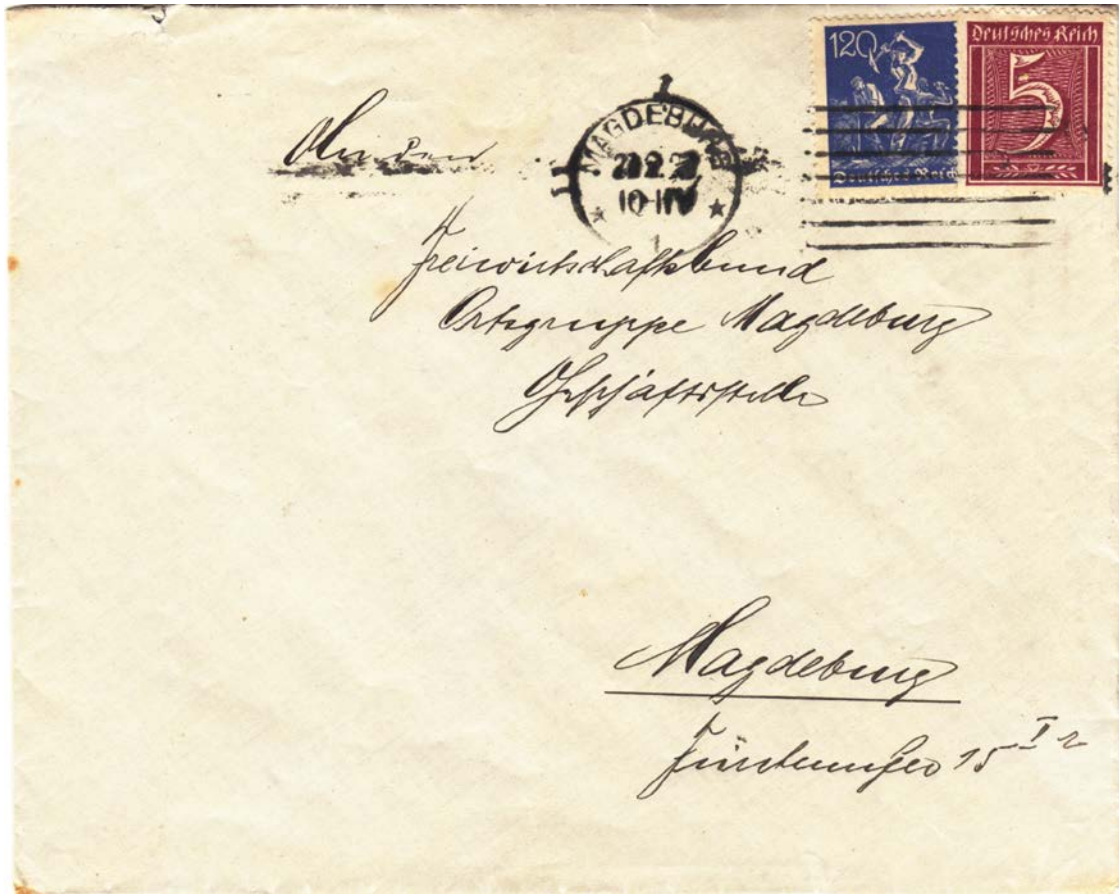 120
Deutsches Reich
Deutsches Reich
5
MAGDEBURG
An den
Freiwirtschaftsbund
Ortsgruppe Magdeburg
Geschäftsstelle
Magdeburg
Fürstenufer 15 I r